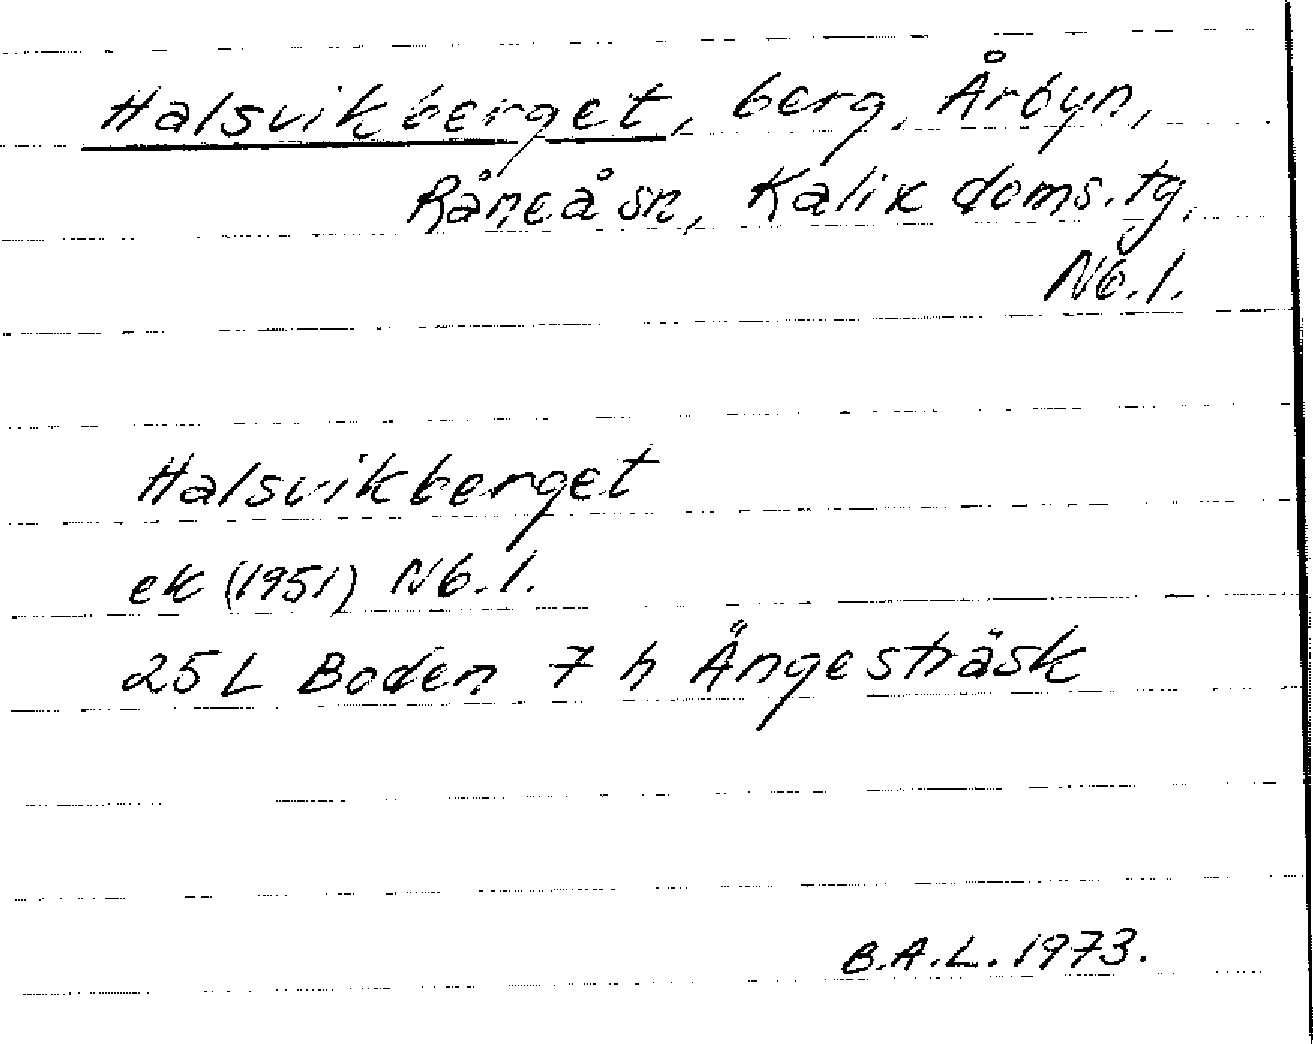 Halsvikberget, berg, Årbyn,
Råneå sn, Kalix doms. tg.
Nb. l.
Halsvikberget
ek (1951) Nb. l.
25 L Boden 7 h Ängesträsk
B.A.L. 1973.